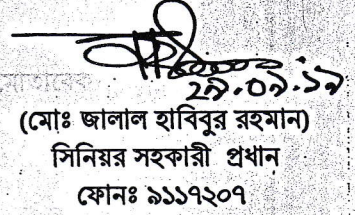 ২৯.০৯.১৯
(মোঃ জালাল হাবিবুর রহমান)
সিনিয়র সহকারী প্রধান
ফোনঃ ৯১১৭২০৭